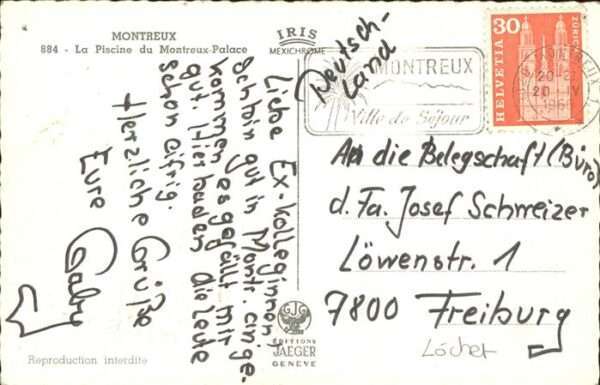 MONTREUX
884 - La Piscine du Montreux-Palace
IRIS
MEXICHROME
Liebe Ex-Kolleginnen,
Ich bin gut in Montr. einge-
kommen, es gefällt mir
gut. Hier baden die Leute
schon eifrig.
Herzliche Grüße
Eure
Gaby
Reproduction interdite
EDITIONS
JAEGER
GENÈVE
MONTREUX
Ville de Séjour
20-21
20. IV
30
HELVETIA
ZÜRICH
Deutsch-
land
An die Belegschaft (Büro)
d. Fa. Josef Schweizer
Löwenstr. 1
7800 Freiburg
Löcher